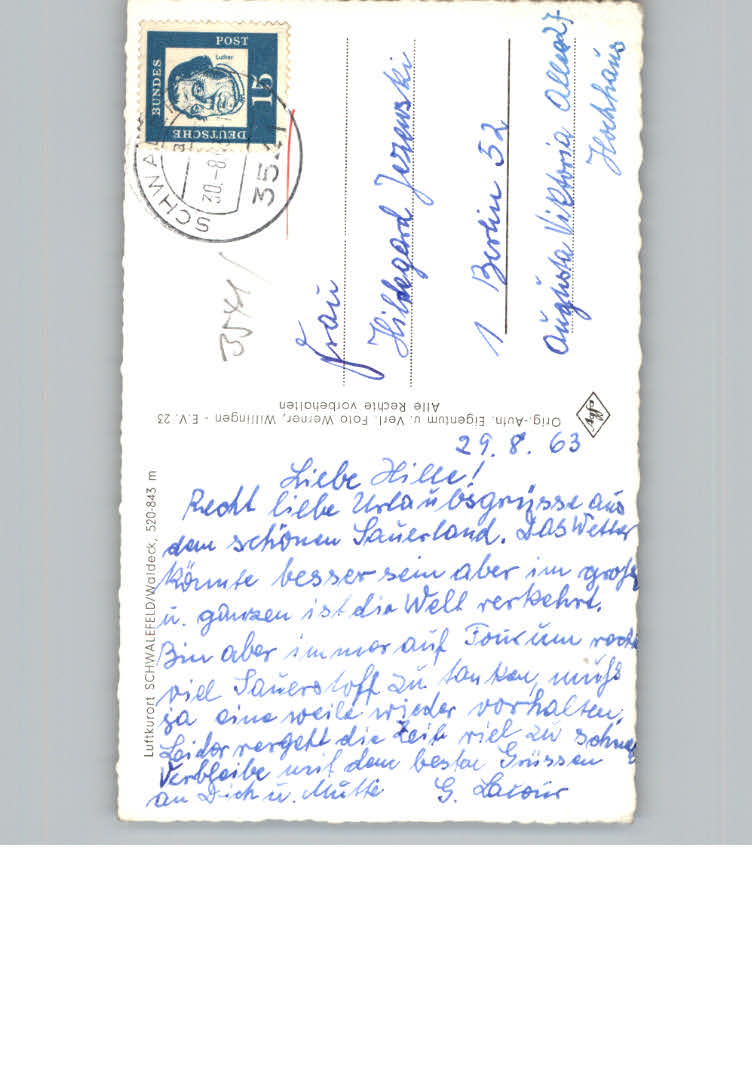 29. 8. 63
Liebe Hille!
Recht liebe Urlaubsgrüsse aus
dem schönen Sauerland. Das Wetter
könnte besser sein aber im großen
u. ganzen ist die Welt verkehrt.
Bin aber immer auf Tour um recht
viel Sauerstoff zu tanken, muß
ja eine weile wieder vorhalten.
Leider vergeht die Zeit viel zu schnell
Verbleibe mit den besten Grüssen
an Dich u. Mutti G. Latour
Frau
Hildegard Jezewski
1 Berlin 52
Augusta Viktoria Allee 27
Hochhaus
Luftkurort SCHWALEFELD/Waldeck, 520-843 m
Orig.-Aufn. Eigentum u. Verl. Foto Werner, Willingen - E.V. 23
Alle Rechte vorbehalten
DEUTSCHE
BUNDES
POST
Luther
15
SCHWA
30.-8.
3541